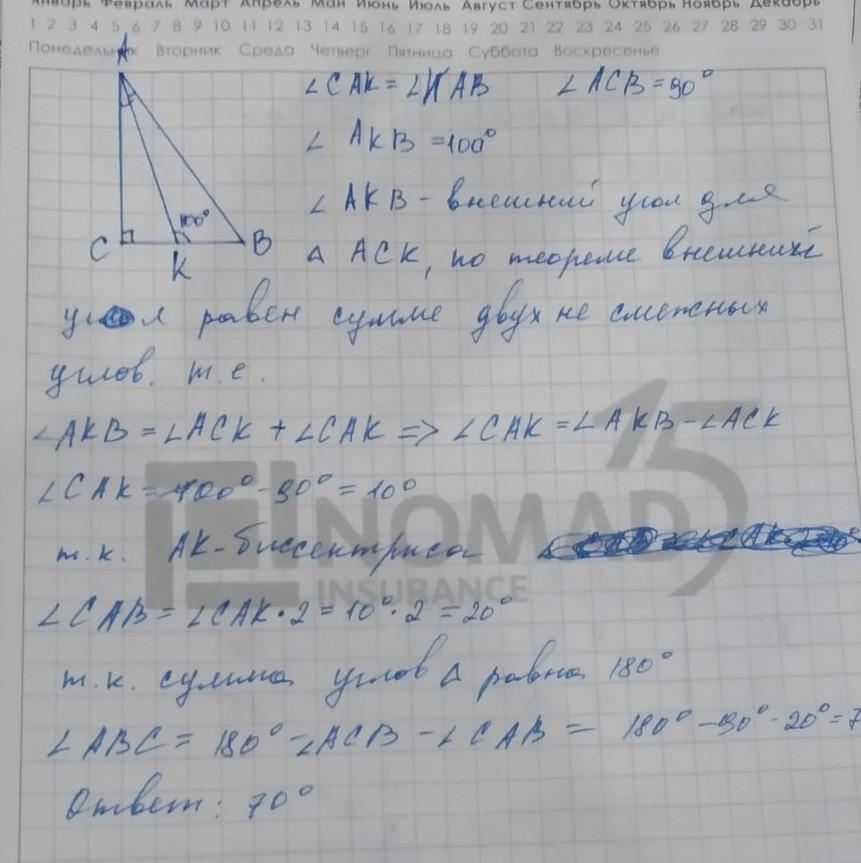 Январь Февраль Март Апрель Май Июнь Июль Август Сентябрь Октябрь Ноябрь Декабрь
1 2 3 4 5 6 7 8 9 10 11 12 13 14 15 16 17 18 19 20 21 22 23 24 25 26 27 28 29 30 31
Понедельник Вторник Среда Четверг Пятница Суббота Воскресенье
A
C
K
B
100°
∠CAK = ∠KAB ∠ACB = 90°
∠ AKB = 100°
∠ AKB - внешний угол для
Δ ACK, по теореме внешний
угол равен сумме двух не смежных
углов. т.е.
∠AKB = ∠ACK + ∠CAK => ∠CAK = ∠AKB - ∠ACK
∠CAK = 100° - 90° = 10°
т.к. AK - биссектриса
∠CAB = ∠CAK · 2 = 10° · 2 = 20°
т.к. сумма углов Δ равна 180°
∠ABC = 180° - ∠ACB - ∠CAB = 180° - 90° - 20° = 7
Ответ: 70°
15
NOMAD
INSURANCE